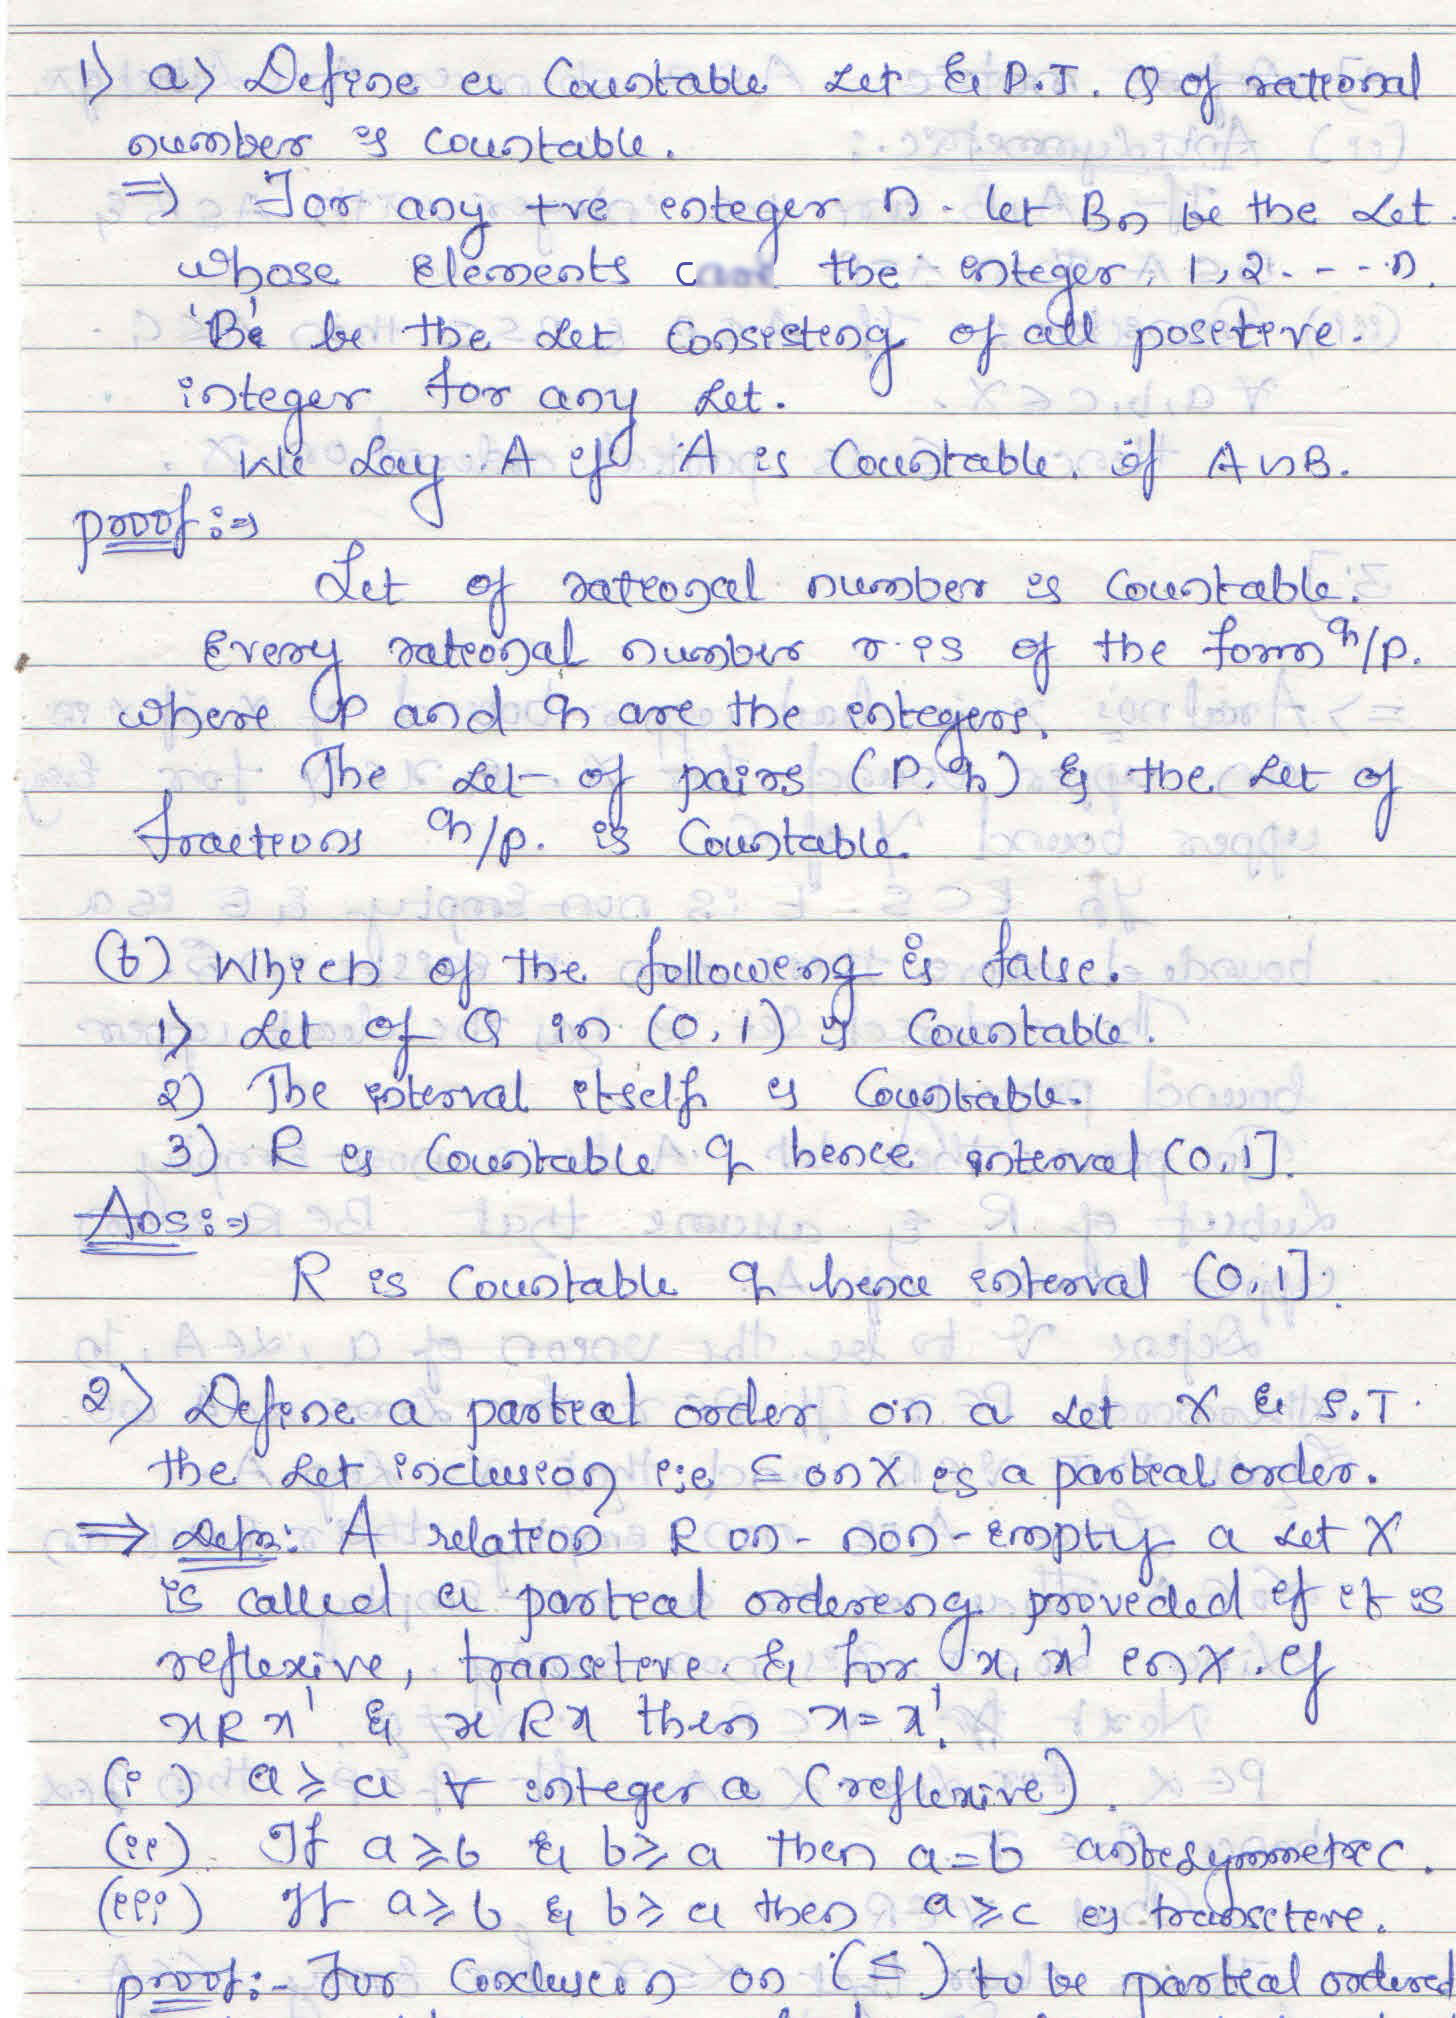 1) a) Define a Countable Set & P.T. Q of rational
number is countable.
⇒ For any +ve integer n. let Bn be the set
whose Elements the integer, 1, 2 - - - - n.
'B' be the set Consisting of all positive.
integer for any set.
We say A if A is Countable. if A ∽ B.
proof :⇒
Set of rational number is Countable.
Every rational number r. is of the form q/p.
where p and q are the integers.
The set of pairs (P, q) & the set of
fractions q/p. is Countable.
(b) Which of the following is false.
1) Set of Q in (0, 1) is Countable.
2) The interval itself is Countable.
3) R is Countable & hence interval (0, 1].
Ans :⇒
R is Countable & hence interval (0, 1].
2) Define a partial order on a set X & S.T.
the set inclusion i;e ⊆ on X is a partial order.
⇒ Defn: A relation R on - non - empty a set X
is called a partial ordering provided if it is
reflexive, transitive & for x, x' in X. if
xRx' & x'Rx then x = x'.
(i) a ≥ a ∀ integer a (reflexive).
(ii) If a ≥ b & b ≥ a then a = b antisymmetric.
(iii) If a ≥ b & b ≥ a then a ≥ c is transitive.
proof:- For on (⊆) to be partial ordered